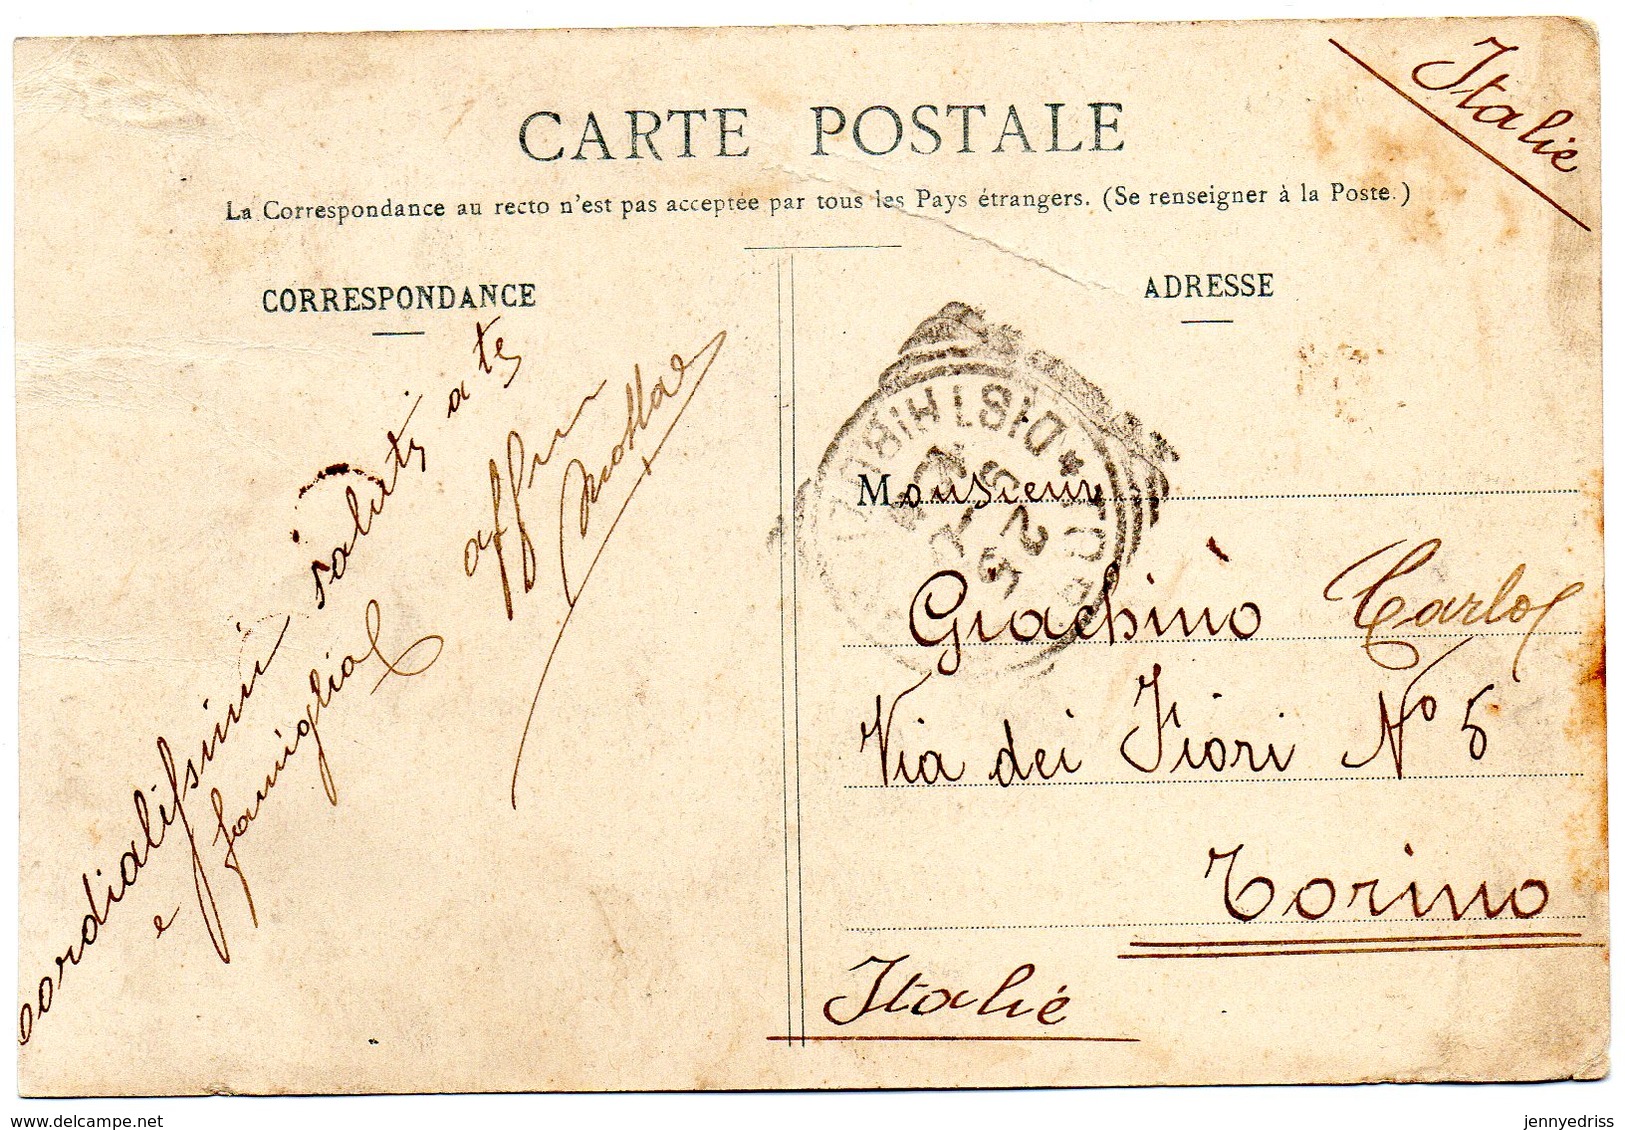 Italie
CARTE POSTALE
La Correspondance au recto n'est pas acceptée par tous les Pays étrangers. (Se renseigner à la Poste.)
CORRESPONDANCE
cordialissimi saluti a te
e famiglia
ADRESSE
Monsieur
Giachino Carlo
Via dei Fiori No 5
Torino
Italie
www.delcampe.net
jennyedriss